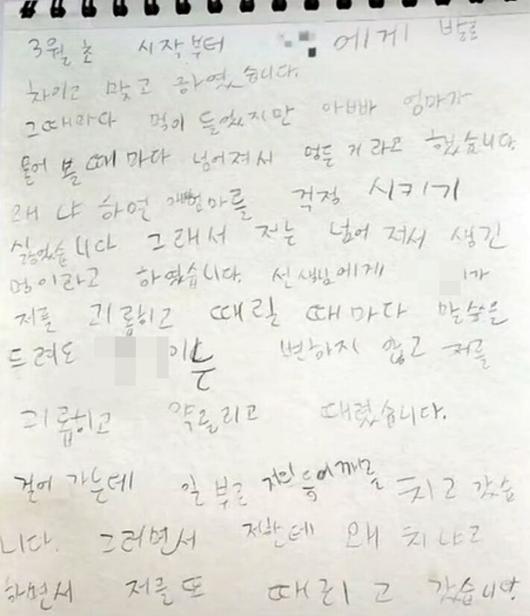 3월 초 시작부터 에게 발로
차이고 맞고 하였습니다.
그때마다 멍이 들었지만 아빠 엄마가
물어 볼 때 마다 넘어져서 멍든 거 라고 했습니다.
왜 냐 하면 엄마를 걱정 시키기
싫었습니다 그래서 저는 넘어 져서 생긴
멍이라고 하였습니다. 선생님에게 가
저를 괴롭히고 때릴 때마다 말씀을
드려도 이는 변하지 않고 저를
괴롭히고 약올리고 때렸습니다.
걸어 가는데 일부로 저의 어깨를 치고 갔습
니다. 그러면서 저한테 왜 치냐고
하면서 저를 또 때리고 갔습니다.